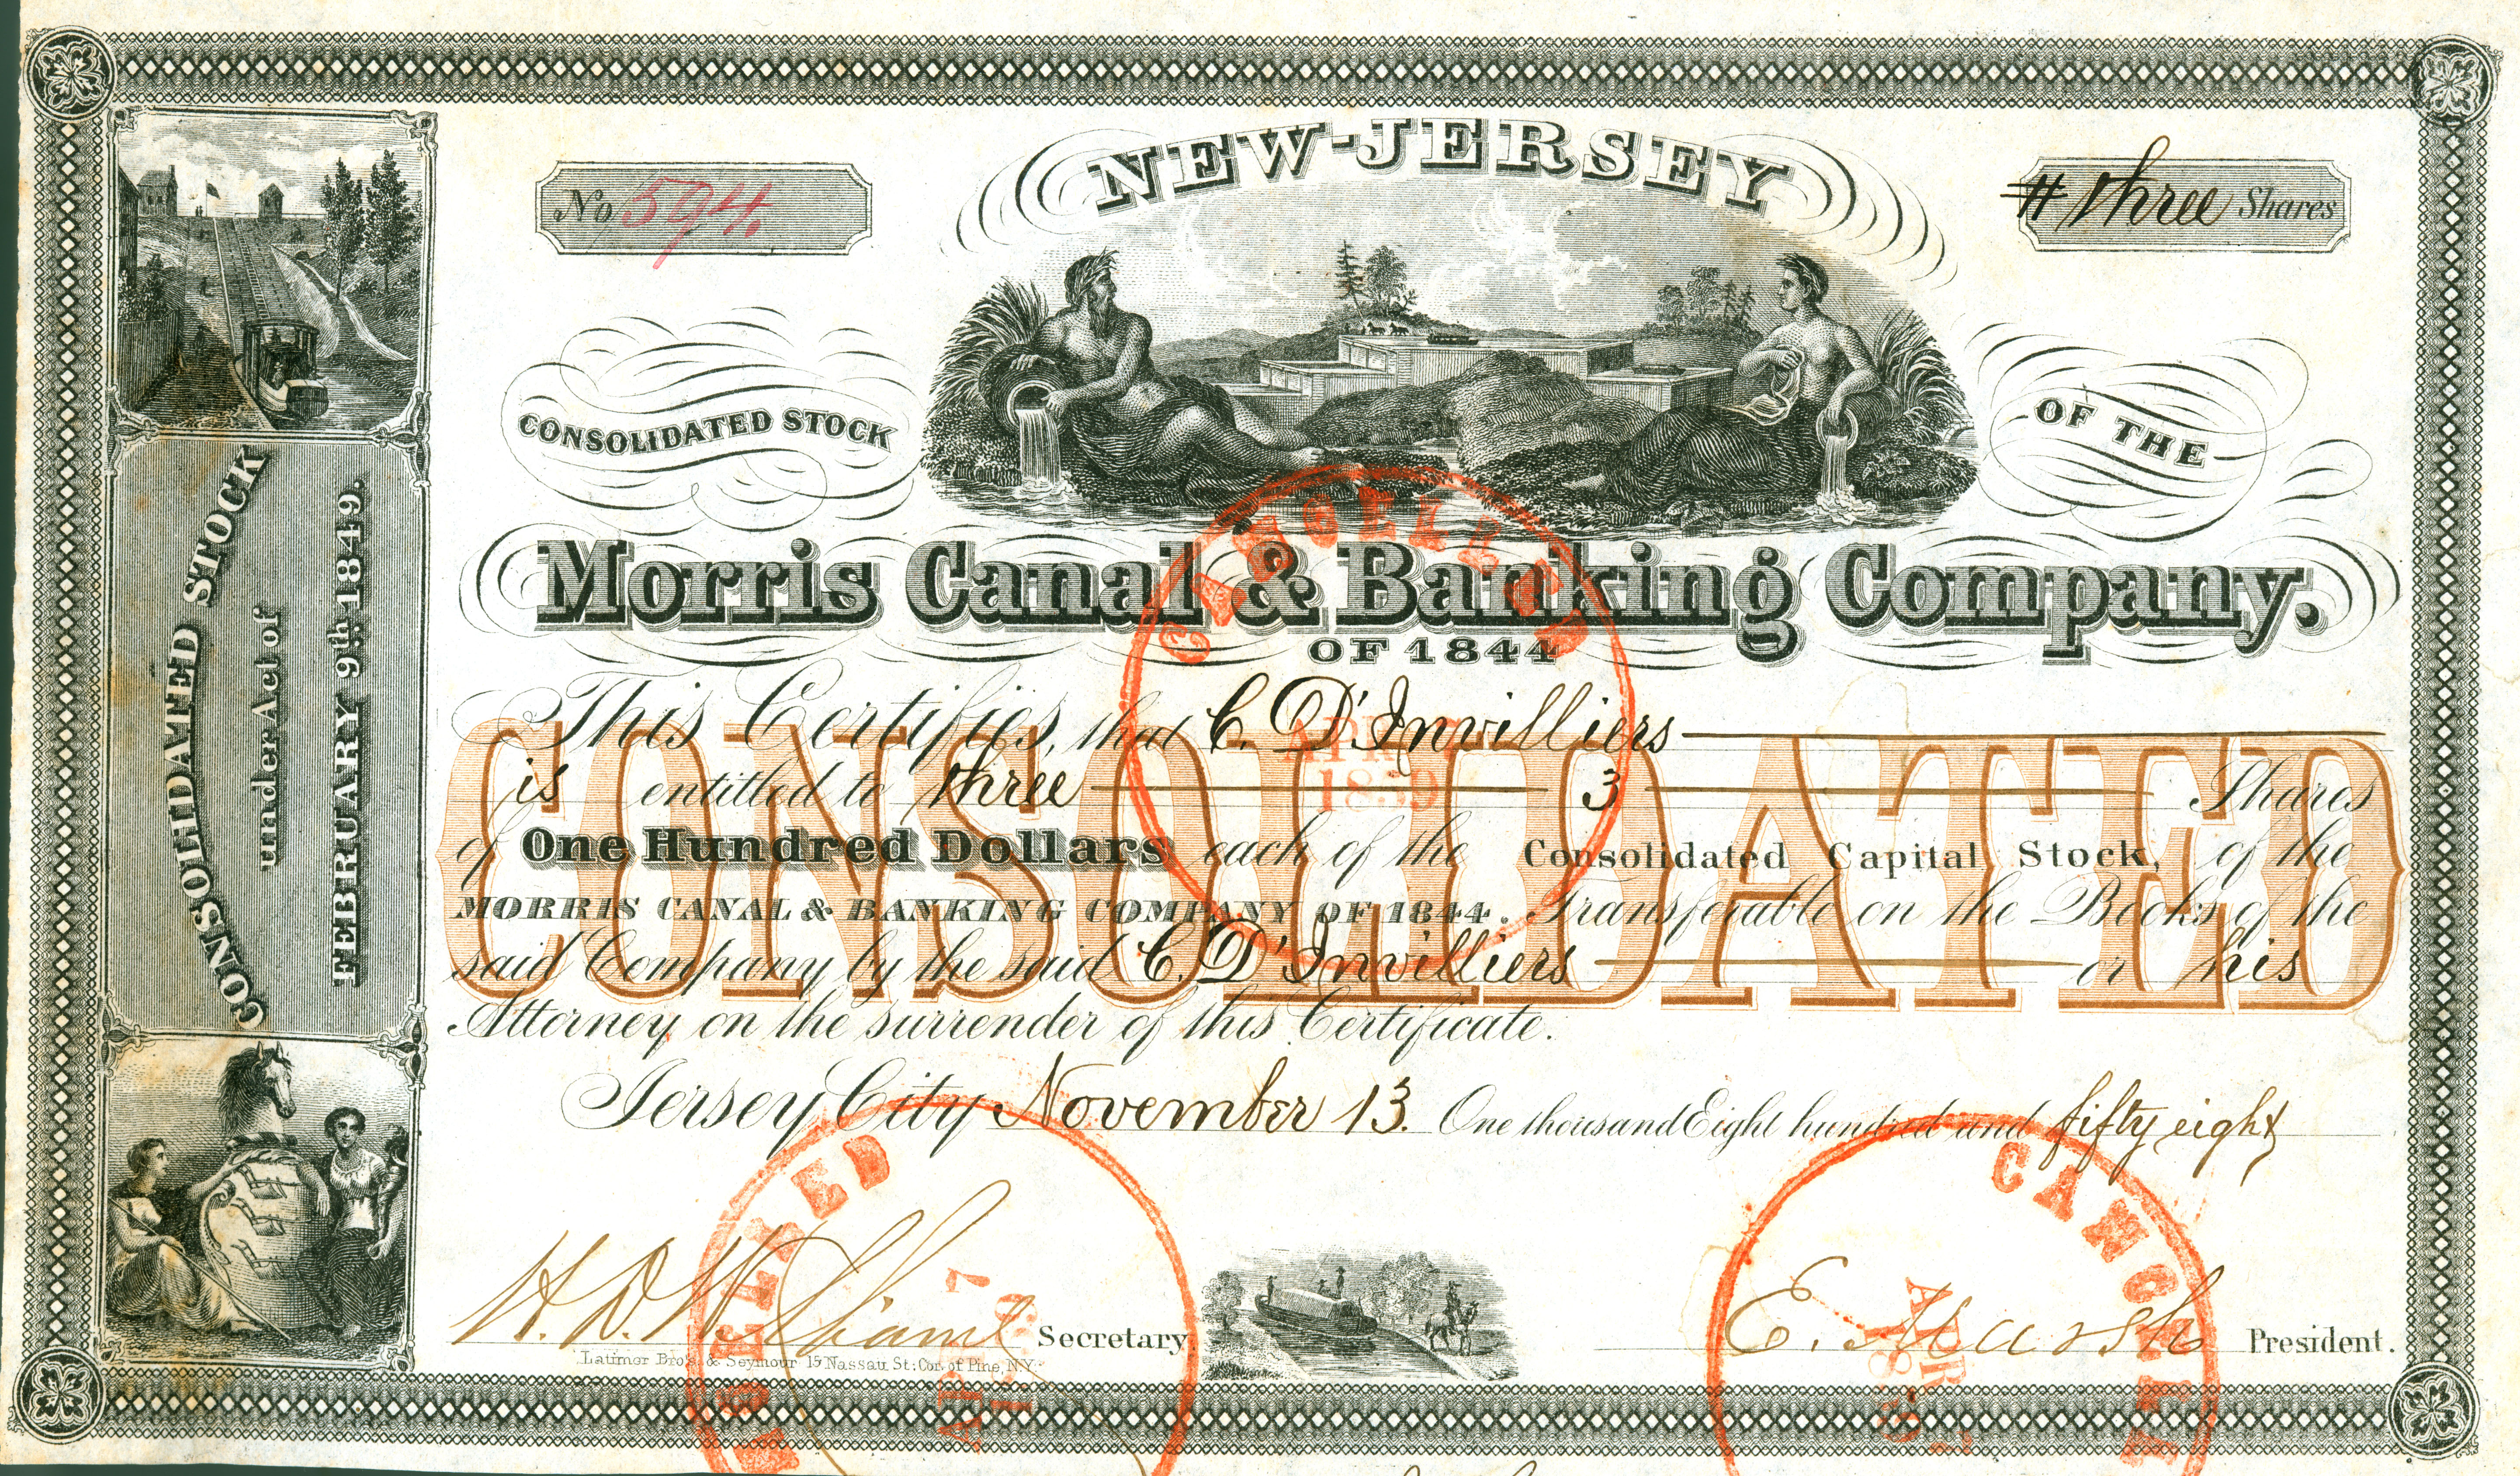 NEW-JERSEY
No 594
# three Shares
CONSOLIDATED STOCK
OF THE
Morris Canal & Banking Company.
OF 1844
This Certifies, that C. D'Invilliers
is entitled to three 3 Shares
of One Hundred Dollars each of the Consolidated Capital Stock, of the
MORRIS CANAL & BANKING COMPANY OF 1844. Transferable on the Books of the
said Company by the said C. D'Invilliers or his
Attorney on the surrender of this Certificate.
CONSOLIDATED
Jersey City November 13. One thousand Eight hundred and fifty eight
Secretary
E. Marsh President.
Latimer Bro's. & Seymour 15 Nassau St: Cor. of Pine, N.Y.
CONSOLIDATED STOCK
under Act of
FEBRUARY 9th. 1849.
CANCELLED
APR 7
1859
CANCELLED
APR 7
CANCELLED
APR